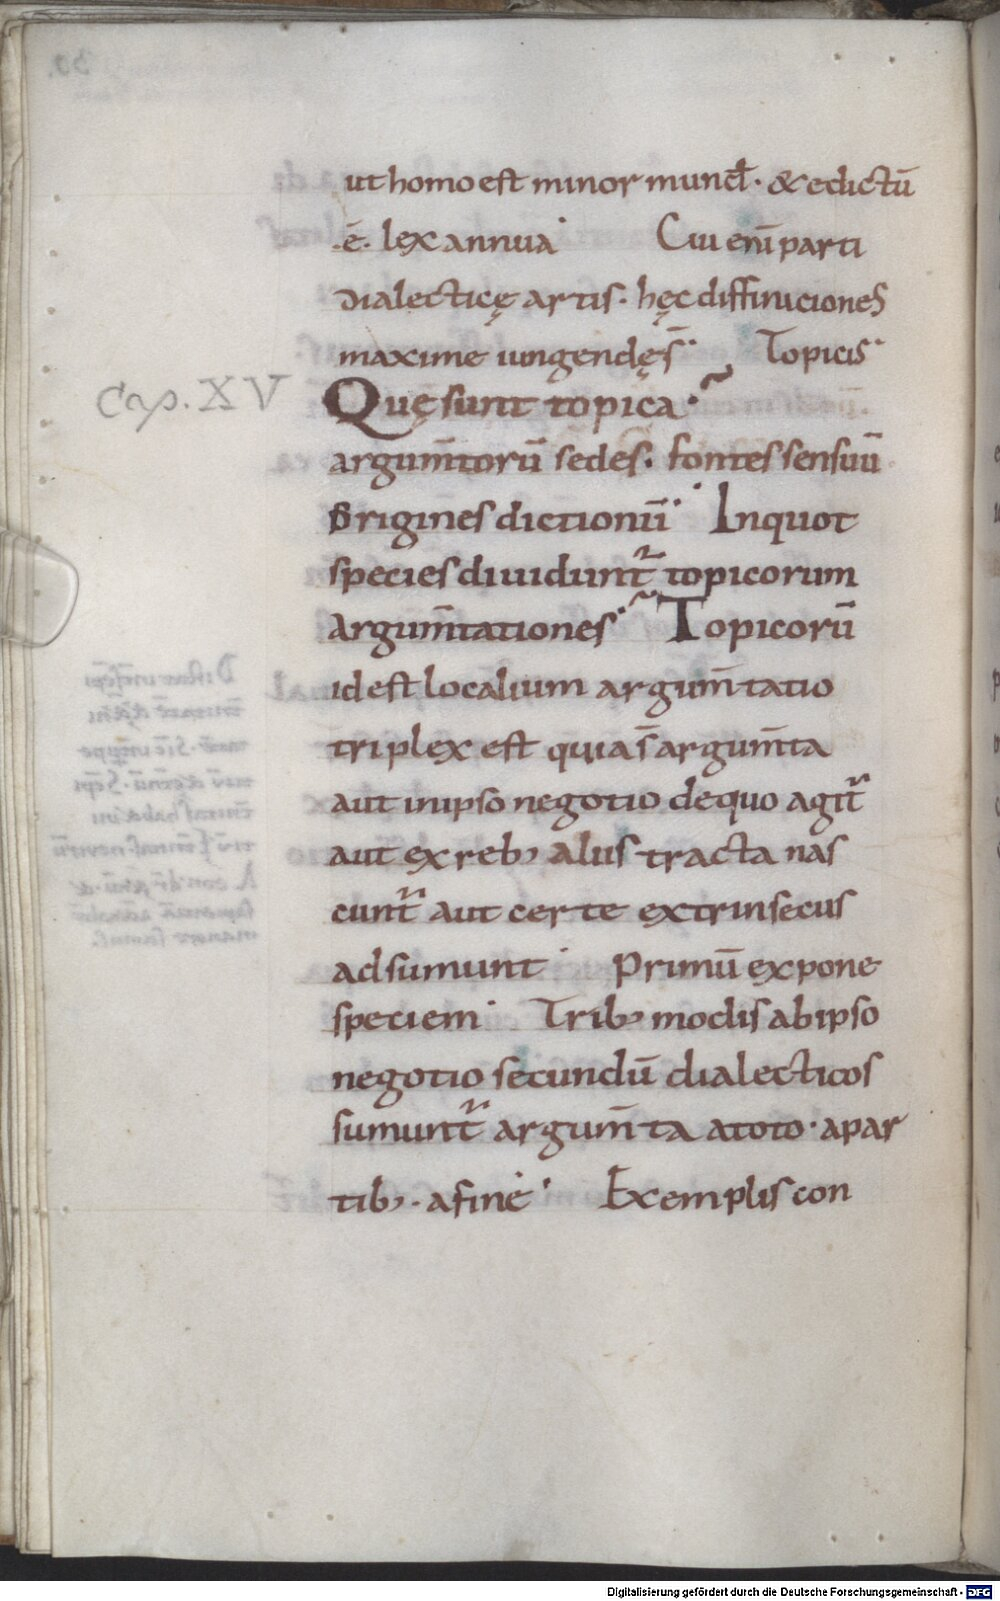 ut homo est minor mund̄. & edictū
.ē. lex annua. Cui eni̅ parti
dialecticę artis. hęc diffiniciones
maxime iungendę s̄. Topicis.
Cap. XV
Quę sunt topica.
argum̄torū sedes. fontes sensuū
Origines dictionū. Inquot
species diuidunt᷑ topicorum
argum̄tationes. Topicorū
id est localium argum̄tatio
triplex est quia s̄ argum̄ta
aut in ipso negotio de quo agit᷑
aut ex reb; aliis tracta nas
cunt᷑ aut certe extrinsecus
adsumunt. Primū expone
speciem. Trib; modis ab ipso
negotio secundū dialecticos
sumunt᷑ argum̄ta a toto. a par
tib;. a fine. Exemplis con
Digitalisierung gefördert durch die Deutsche Forschungsgemeinschaft - DFG